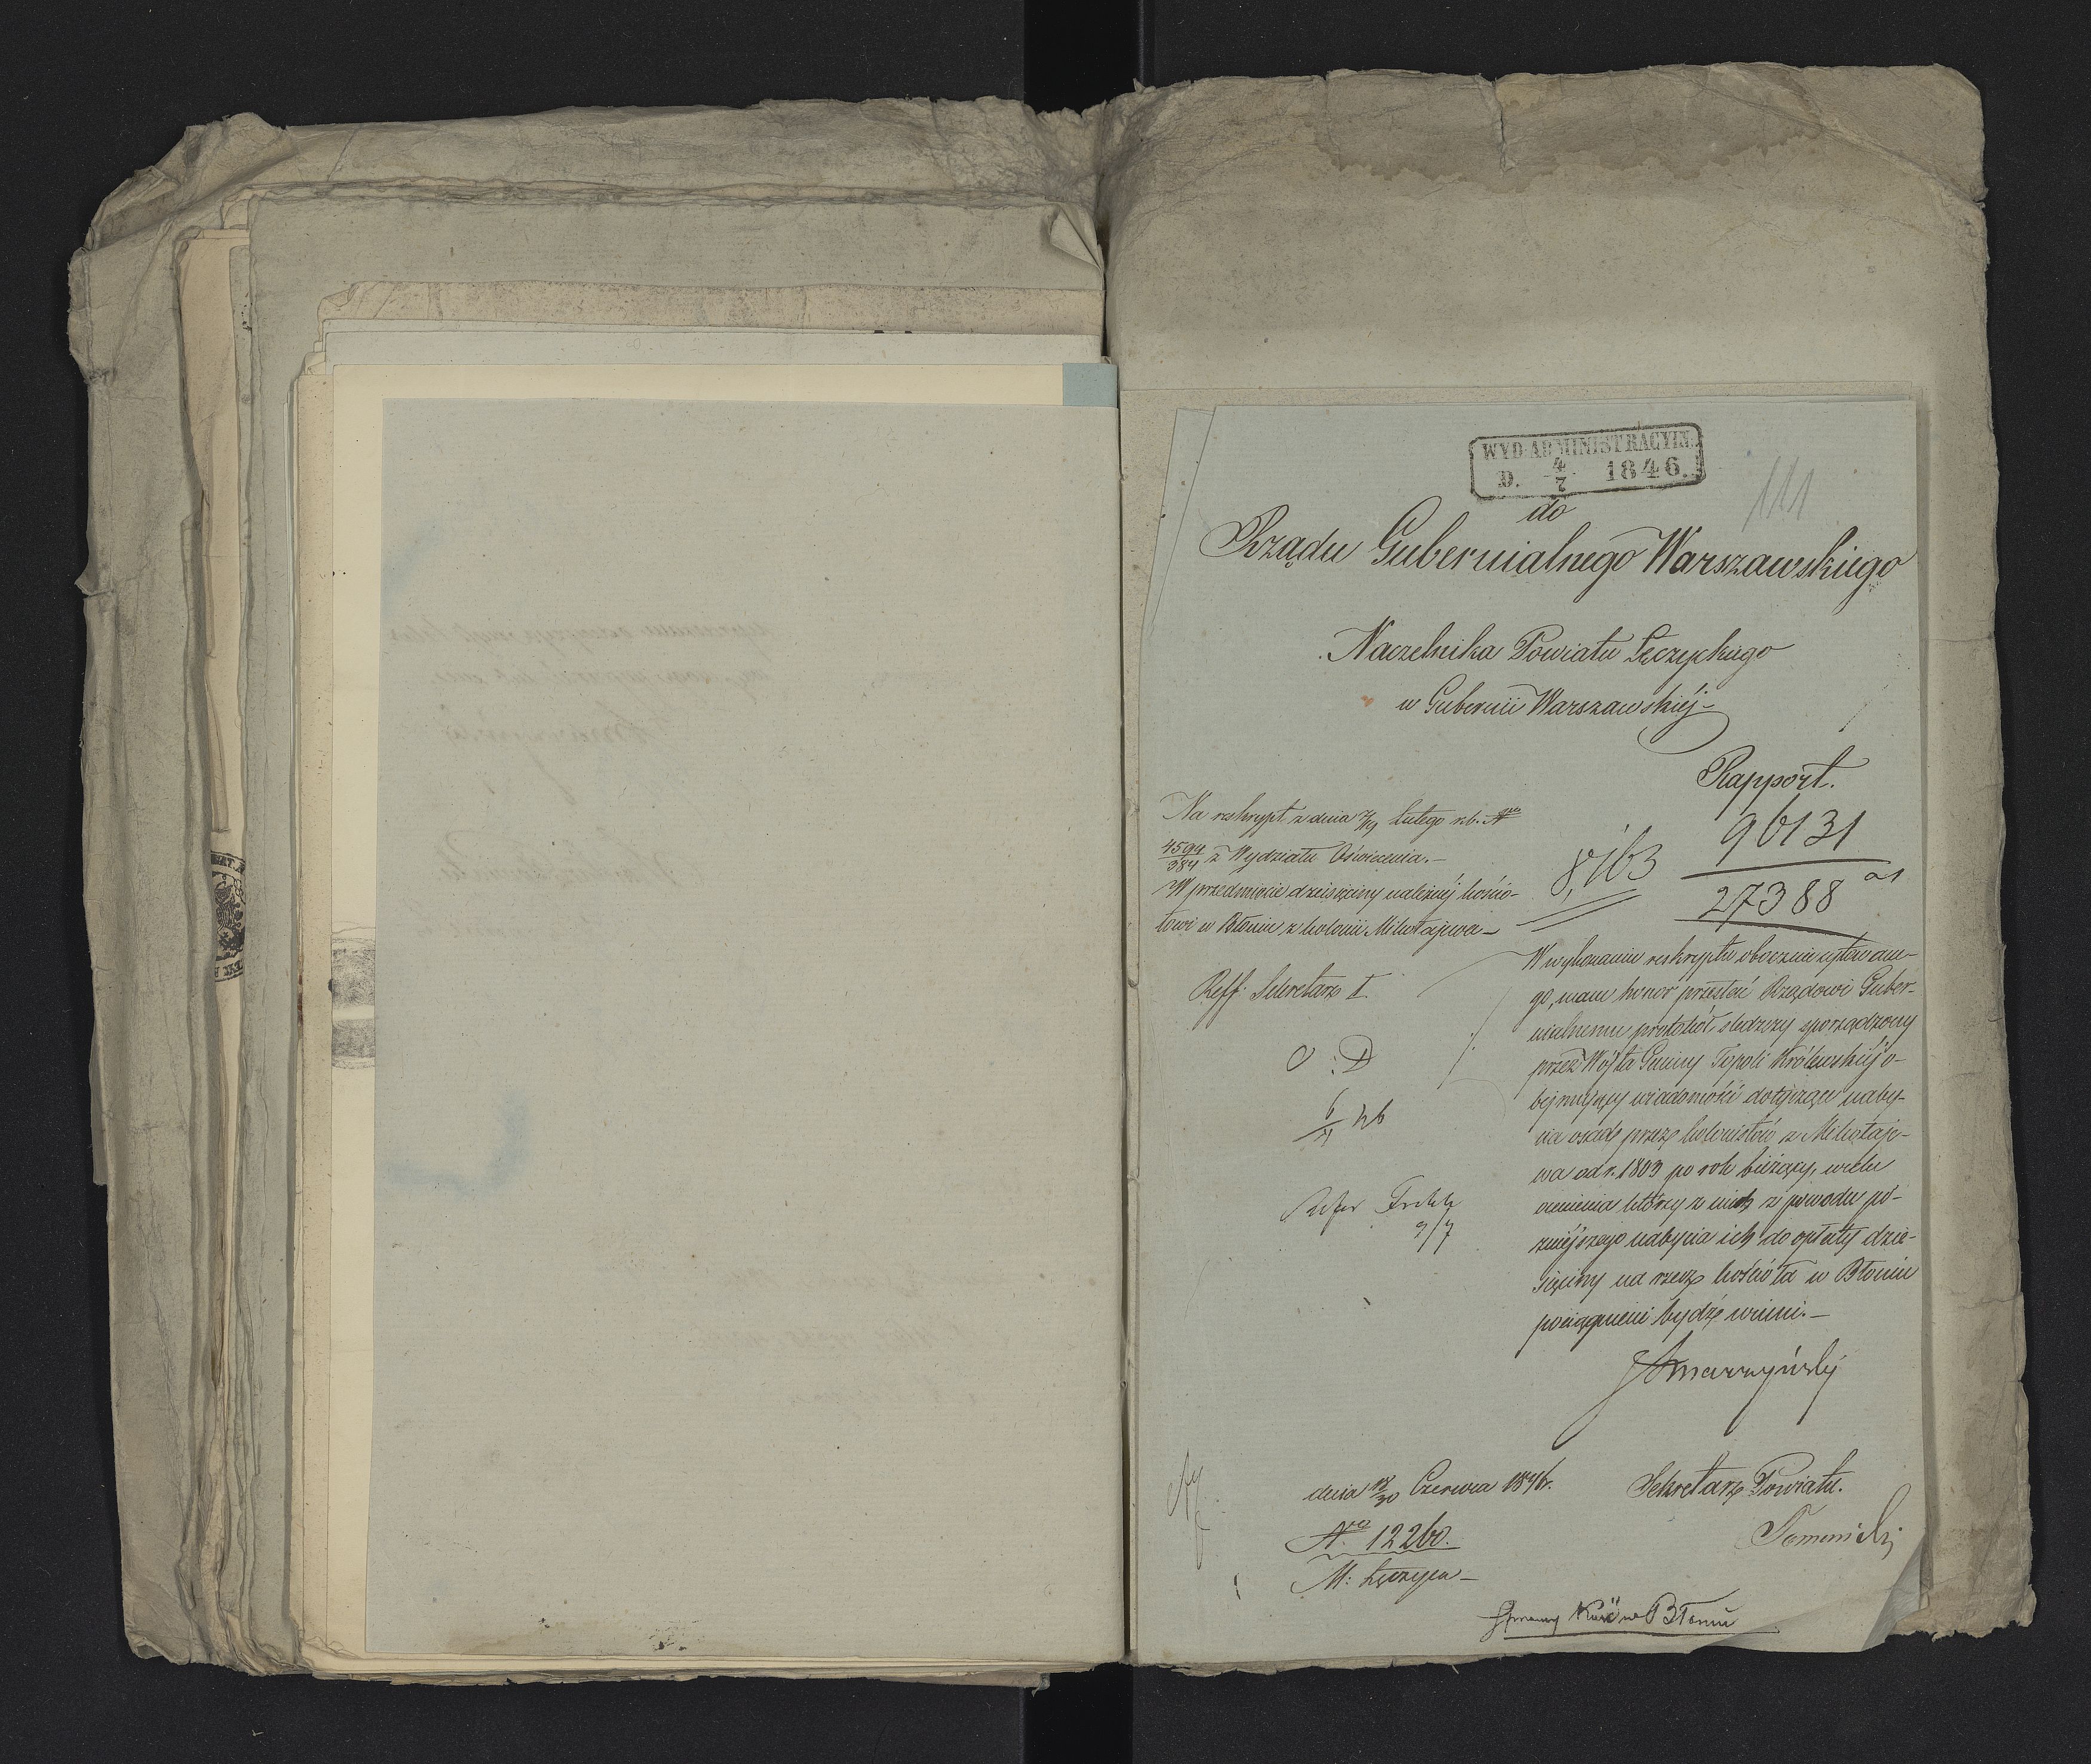 WYD ADMINISTRACYJN.
D. 4/7 1846.
111
do
Rządu Gubernialnego Warszawskiego
Naczelnika Powiatu Łęczyckiego
w Gubernii Warszawskiéj
Rapport.
Na reskrypt z dnia 7/19 Lutego r.b. Nro
4594/384 z Wydziału Oświecenia.
W przedmiocie dziesięciny należnéj kościo-
łowi w Błoniu z kolonii Mikołajewa
8,163
96131
27388
Reff. Sekretarz I.
W wykonaniu reskryptu obocznie cytowane-
go, mam honor przesłać Rządowi Guber-
nialnemu protokół śledczy sporządzony
przez Wójta Gminy Topoli Królewskiéj o-
bejmujący wiadomości dotyczące naby-
cia osad przez kolonistów z Mikołaje-
wa od r. 1803 po rok bieżący, w celu
ocenienia którzy z nich z powodu pó-
zniejszego nabycia ich do opłaty dzie-
sięciny na rzecz kościoła w Błoniu
pociągnieni bydź winni.
dnia 18/30 Czerwca 1846 r.
Sekretarz Powiatu.
Nro 12260.
M: Łęczyca
w Błoniu